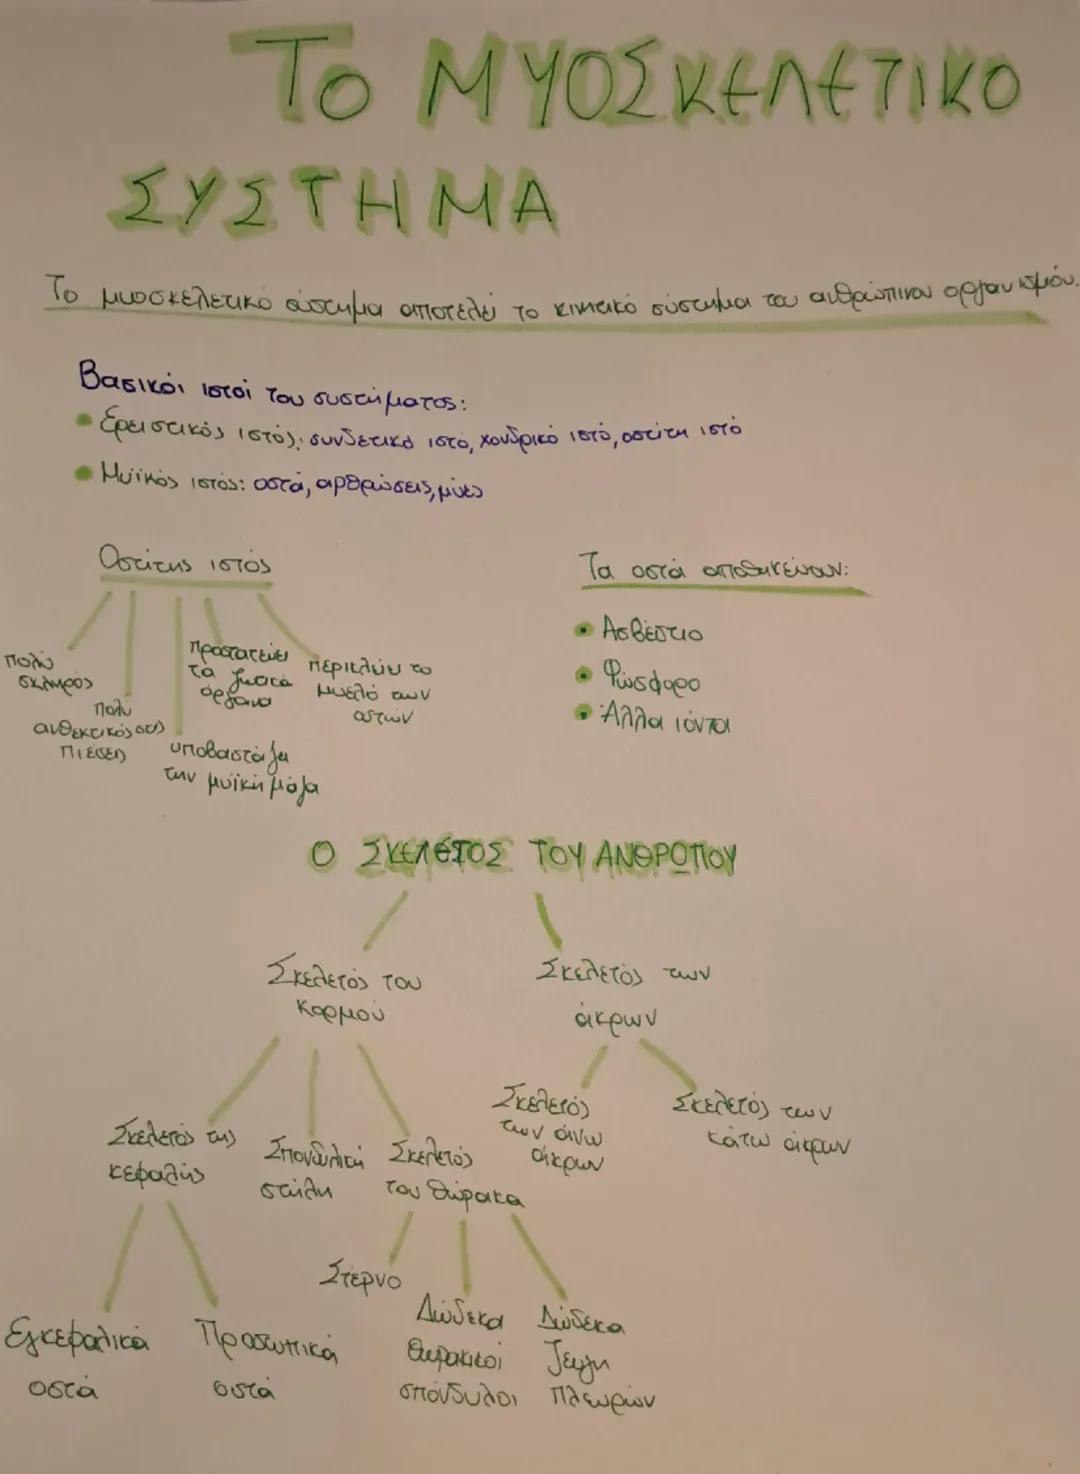 ΤΟ ΜΥΟΣΚΕΛΕΤΙΚΟ
ΣΥΣΤΗΜΑ
Το μυοσκελετικό σύστημα αποτελεί το κινητικό σύστημα του ανθρώπινου οργανισμού.
Βασικοί ιστοί του συστήματος:
Ερειστικός ιστός: συνδετικό ιστό, χονδρικό ιστό, οστίτη ιστό
Μυϊκός ιστός: οστά, αρθρώσεις, μύες
Οστίτης ιστός
πολύ
σκληρός
πολύ
ανθεκτικός σε
πιέσεις
υποβαστάζει
την μυϊκή μάζα
προστατεύει
τα ζωτικά
όργανα
περικλύει το
μυελό των
οστών
Τα οστά αποθηκεύουν:
Ασβέστιο
Φώσφορο
Άλλα ιόντα
Ο ΣΚΕΛΕΤΟΣ ΤΟΥ ΑΝΘΡΩΠΟΥ
Σκελετός του
κορμού
Σκελετός των
άκρων
Σκελετός της
κεφαλής
Σπονδυλική
στήλη
Σκελετός
του θώρακα
Σκελετός
των άνω
άκρων
Σκελετός των
κάτω άκρων
Εγκεφαλικά
οστά
Προσωπικά
οστά
Στέρνο
Δώδεκα
θωρακικοί
σπόνδυλοι
Δώδεκα
ζεύγη
πλευρών